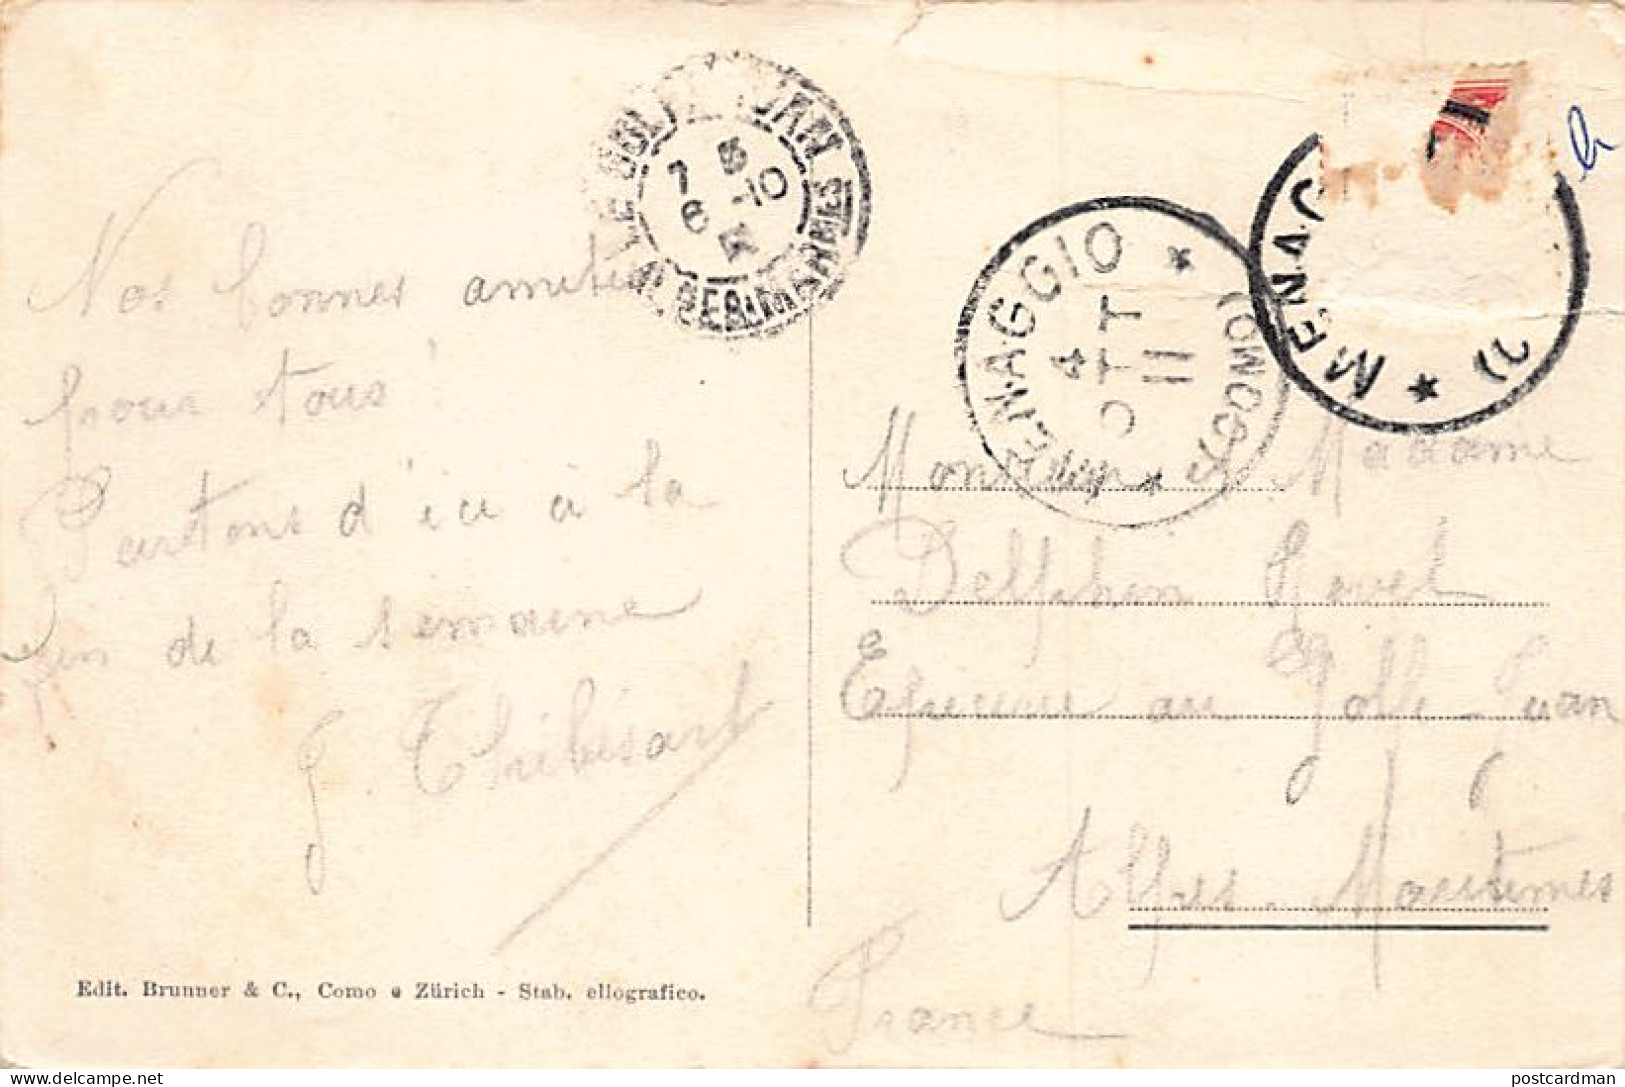 Nos bonnes amitiés
pour tous !
Partons d'ici à la
fin de la semaine
G. Thibisart
Edit. Brunner & C., Como e Zürich - Stab. eliografico.
LE GOLFE JUAN
ALPES MARITIMES
7 5
6 -10
MENAGGIO
4
OTT
11
(COMO)
MENAG
Monsieur et Madame
Delphin
Epicerie au Golfe-Juan
Alpes-Maritimes
France
postcardman